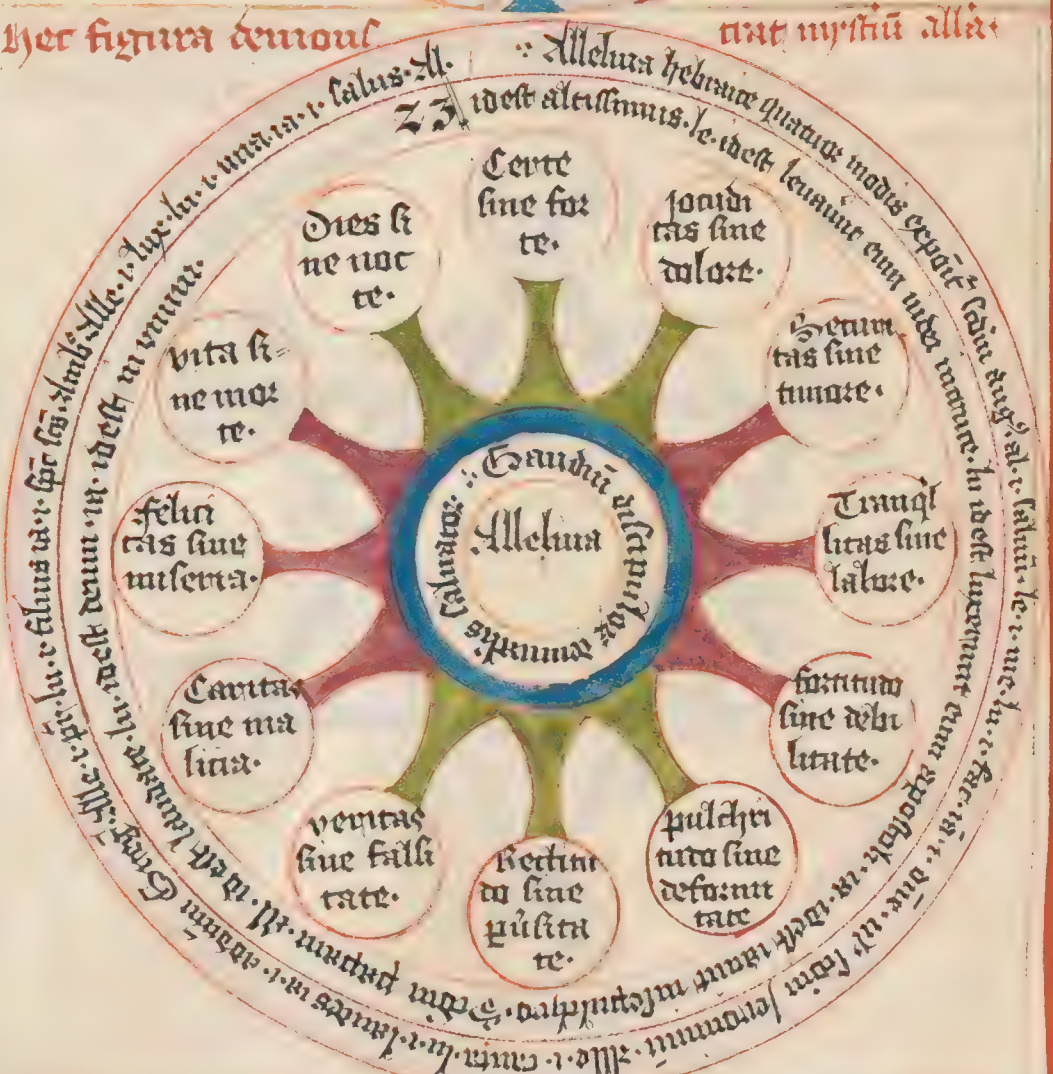 Hec figura demons
trat mysteriū alla
Alleluia hebraice quatuor modis exponit̄ scdm aug⁹ al · i · saluū · le · i · me · lu · i · fac · ia · i · dn̄e · ul̄ scdm Jeronimū alle · i · canta · lu · i · laudes ia · i · ad dn̄m Greg⁹ Alle · i · pr̄ · lu · e filius ia · i · sp̄c scs̄ · Amb̄s Alle · i · lux · lu · i · uita · ia · i · salus · Al ·
23 idest altissimus · le · idest leuauit eum in cruce · lu idest lugebant eum apostoli · ia · idest iam
Scdm papam · al · id est laudate · lu · idest deum · ia · idest
Certe
sine for
te ·
Jocūdi
tas sine
dolore ·
Securi
tas sine
timore ·
Tranq̄l
litas sine
labore ·
fortitudo
sine debi
litate ·
pulchri
tudo sine
deformi
tate
Rectitu
do sine
pūsita
te ·
veritas
sine falsi
tate ·
Caritas
sine ma
licia ·
felici
tas sine
miseria ·
vita si
ne mor
te ·
Dies si
ne noc
te ·
Gaudiū discipuloꝝ
Alleluia